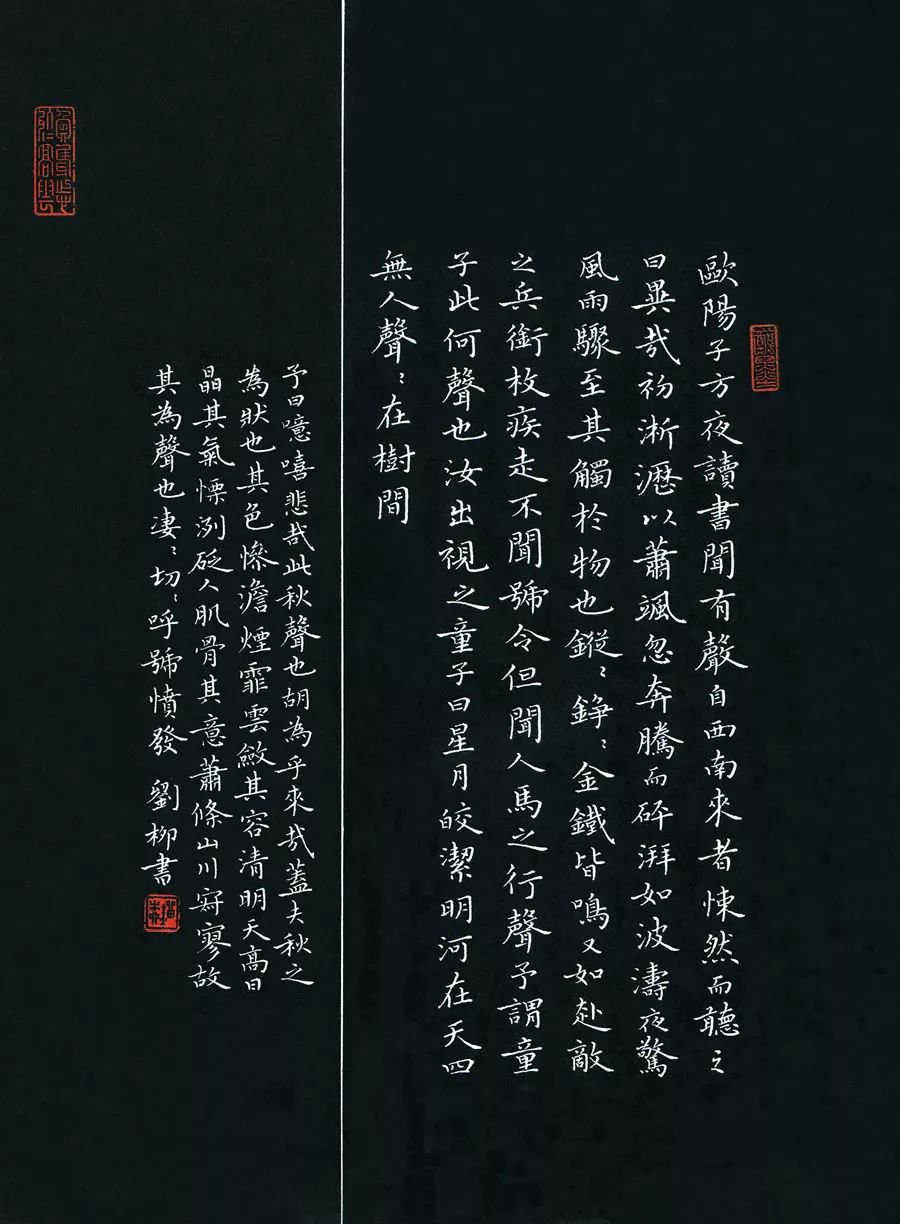 歐陽子方夜讀書聞有聲自西南來者悚然而聽之
曰異哉初淅瀝以蕭颯忽奔騰而砰湃如波濤夜驚
風雨驟至其觸於物也鏦〻錚〻金鐵皆鳴又如赴敵
之兵銜枚疾走不聞號令但聞人馬之行聲予謂童
子此何聲也汝出視之童子曰星月皎潔明河在天四
無人聲〻在樹間
予曰噫嘻悲哉此秋聲也胡為乎來哉蓋夫秋之
為狀也其色慘澹煙霏雲斂其容清明天高日
晶其氣慄洌砭人肌骨其意蕭條山川寂寥故
其為聲也淒〻切〻呼號憤發 劉柳書